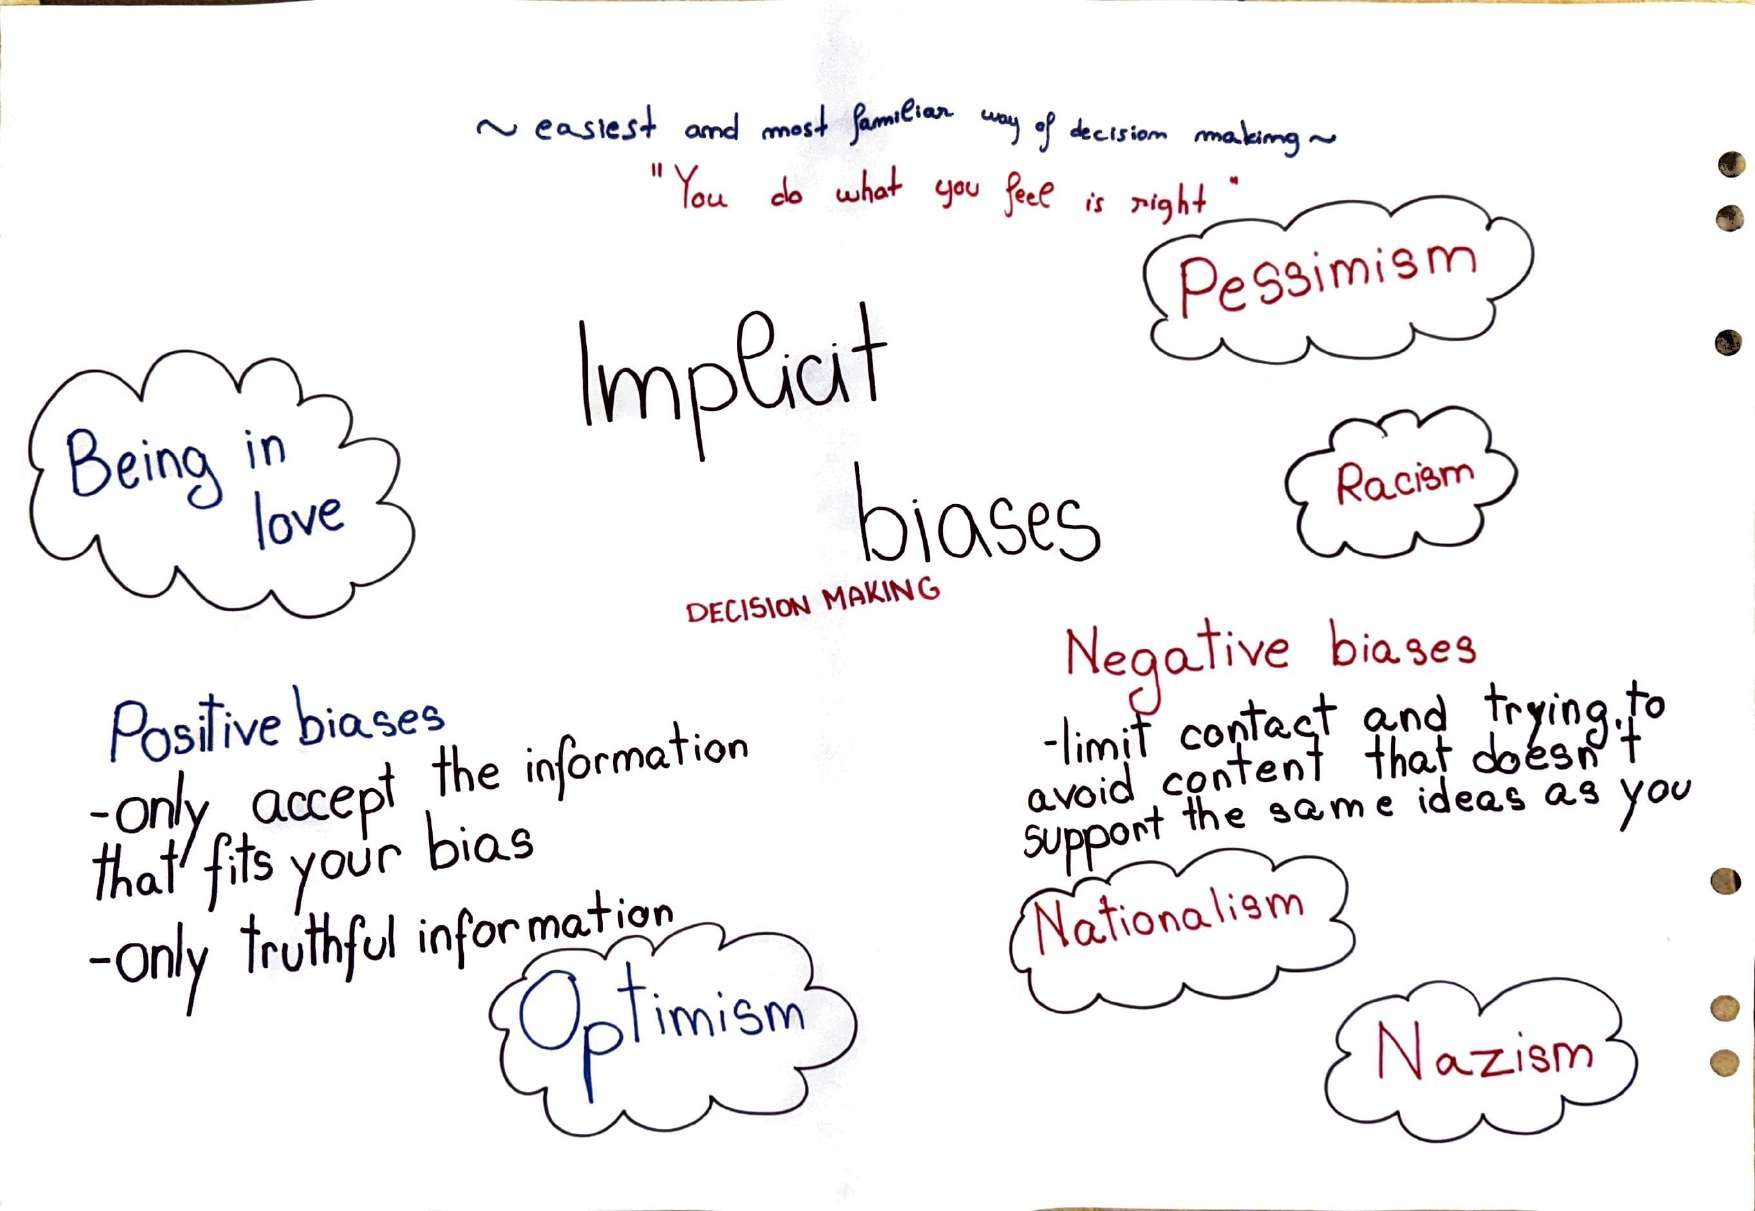 ~ easiest and most familiar way of decision making ~
"You do what you feel is right"
Pessimism
Implicit
biases
DECISION MAKING
Being in
love
Racism
Positive biases
-only accept the information
that fits your bias
-only truthful information
Optimism
Negative biases
-limit contact and trying to
avoid content that doesn't
support the same ideas as you
Nationalism
Nazism